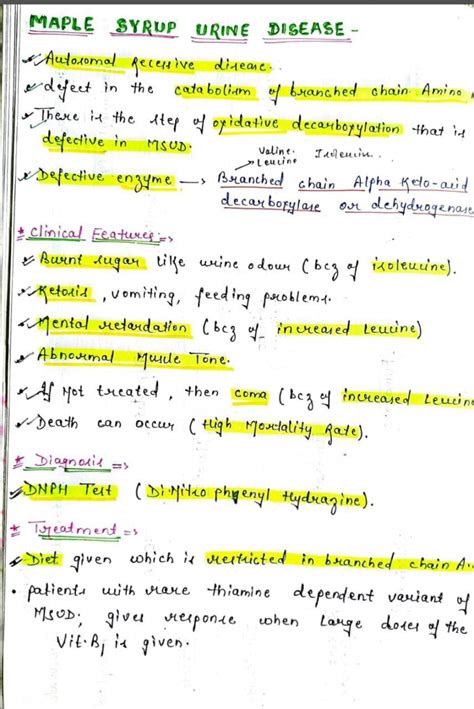 MAPLE SYRUP URINE DISEASE -
Autosomal Recessive disease.
defect in the catabolism of branched chain Amino
There is the step of oxidative decarboxylation that is
defective in MSUD.
Valine.
Leucine Isoleucin..
Defective enzyme → Branched chain Alpha Keto-acid
decarboxylase or dehydrogenase
* Clinical Features:=>
Burnt sugar like urine odour (bcz of isoleucine).
Ketosis, vomiting, feeding problems.
Mental retardation (bcz of increased Leucine)
Abnormal Muscle Tone.
If Not treated, then coma (bcz of increased Leucine
Death can occur (High Mortality Rate).
* Diagnosis =>
DNPH Test (Di Nitro phenyl Hydrazine).
* Treatment =>
Diet given which is restricted in branched chain A.
• patients with rare thiamine dependent variant of
MSUD; gives response when Large doses of the
Vit. B₁ is given.